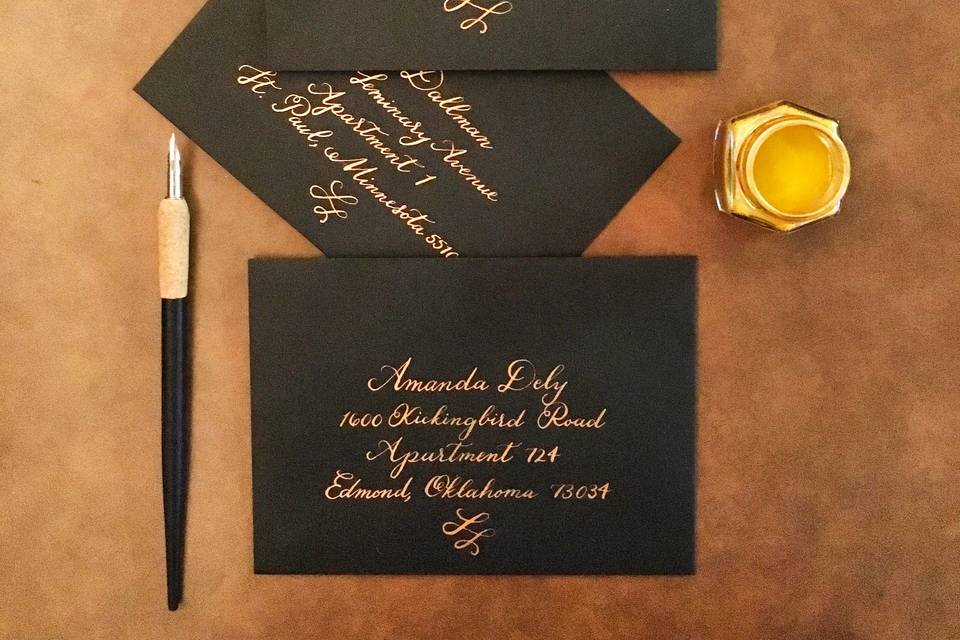 Dallman
Seminary Avenue
Apartment 1
St. Paul, Minnesota 5510
Amanda Dely
1600 Kickingbird Road
Apartment 724
Edmond, Oklahoma 73034